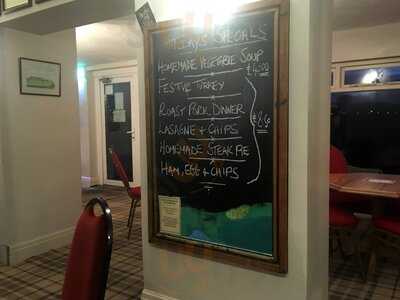 TODAYS SPECIALS
HOMEMADE VEGETABLE SOUP £4.00
FESTIVE TURKEY
ROAST PORK DINNER
LASAGNE + CHIPS
HOMEMADE STEAK PIE
HAM, EGG + CHIPS